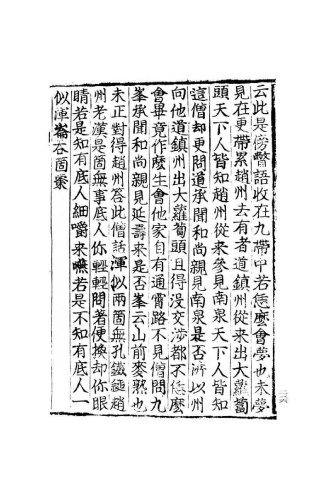 云此是傍瞥語收在九帶中若恁麼會夢也未夢
見在更帶累趙州去有者道鎮州從來出大蘿蔔
頭天下人皆知趙州從來參見南泉天下人皆知
這僧却更問道承聞和尚親見南泉是否所以州
向他道鎮州出大蘿蔔頭且得没交涉都不恁麼
會畢竟作麼生會他家自有通霄路不見僧問九
峯承聞和尚親見延壽來是否峯云山前麥熟也
未正對得趙州荅此僧話渾似兩箇無孔鐵鎚趙
州老漢是箇無事底人你輕輕問著便換却你眼
睛若是知有底人細嚼來嚥若是不知有底人一
似渾崙吞箇棗